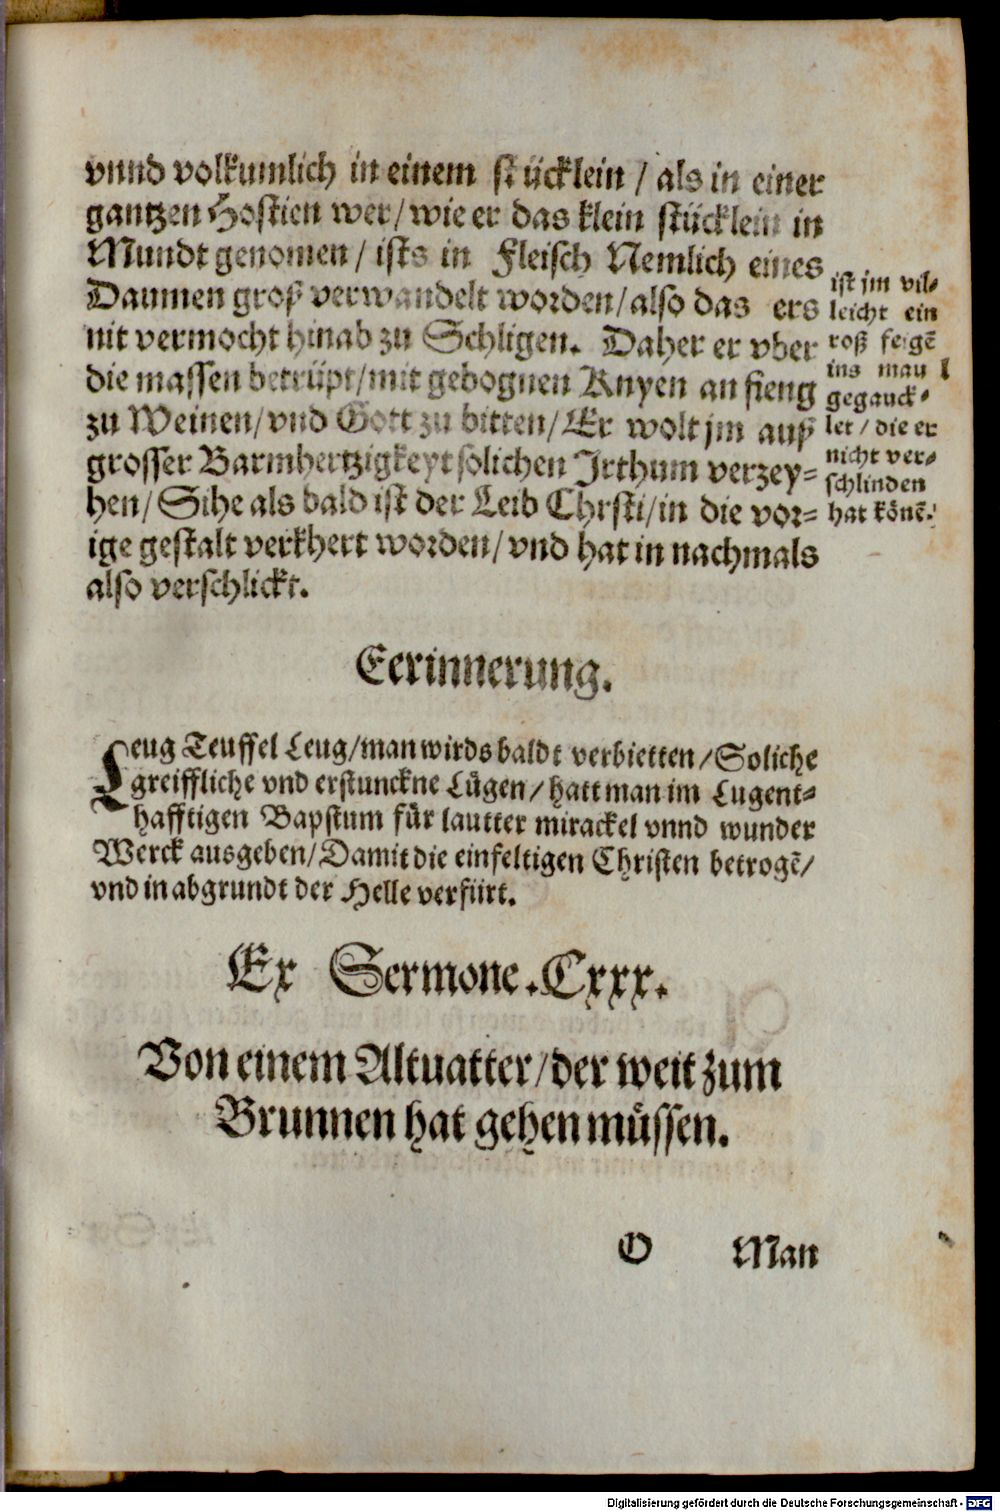 vnnd volkumlich in einem stücklein / als in einer
gantzen Hostien wer / wie er das klein stücklein in
Mundt genomen / ists in Fleisch Nemlich eines
Daumen groß verwandelt worden / also das ers
nit vermocht hinab zu Schligen. Daher er vber
die massen betrüpt / mit gebognen Knyen an fieng
zu Weinen / vnd Gott zu bitten / Er wolt jm auß
grosser Barmhertzigkeyt solichen Jrthum verzey=
hen / Sihe als bald ist der Leib Chrsti / in die vor=
ige gestalt verkhert worden / vnd hat in nachmals
also verschlickt.
ist jm vil=
leicht ein
roß feigē
ins maul
gegauck=
let / die er
nicht ver=
schlinden
hat könē.
Eerinnerung.
Leug Teuffel Leug / man wirds baldt verbietten / Soliche
greiffliche vnd erstunckne Lügen / hatt man im Lugent=
hafftigen Bapstum für lautter mirackel vnnd wunder
Werck ausgeben / Damit die einfeltigen Christen betrogē /
vnd in abgrundt der Helle verfürt.
Ex Sermone. Cxxx.
Von einem Altuatter / der weit zum
Brunnen hat gehen müssen.
O Man
Digitalisierung gefördert durch die Deutsche Forschungsgemeinschaft - DFG